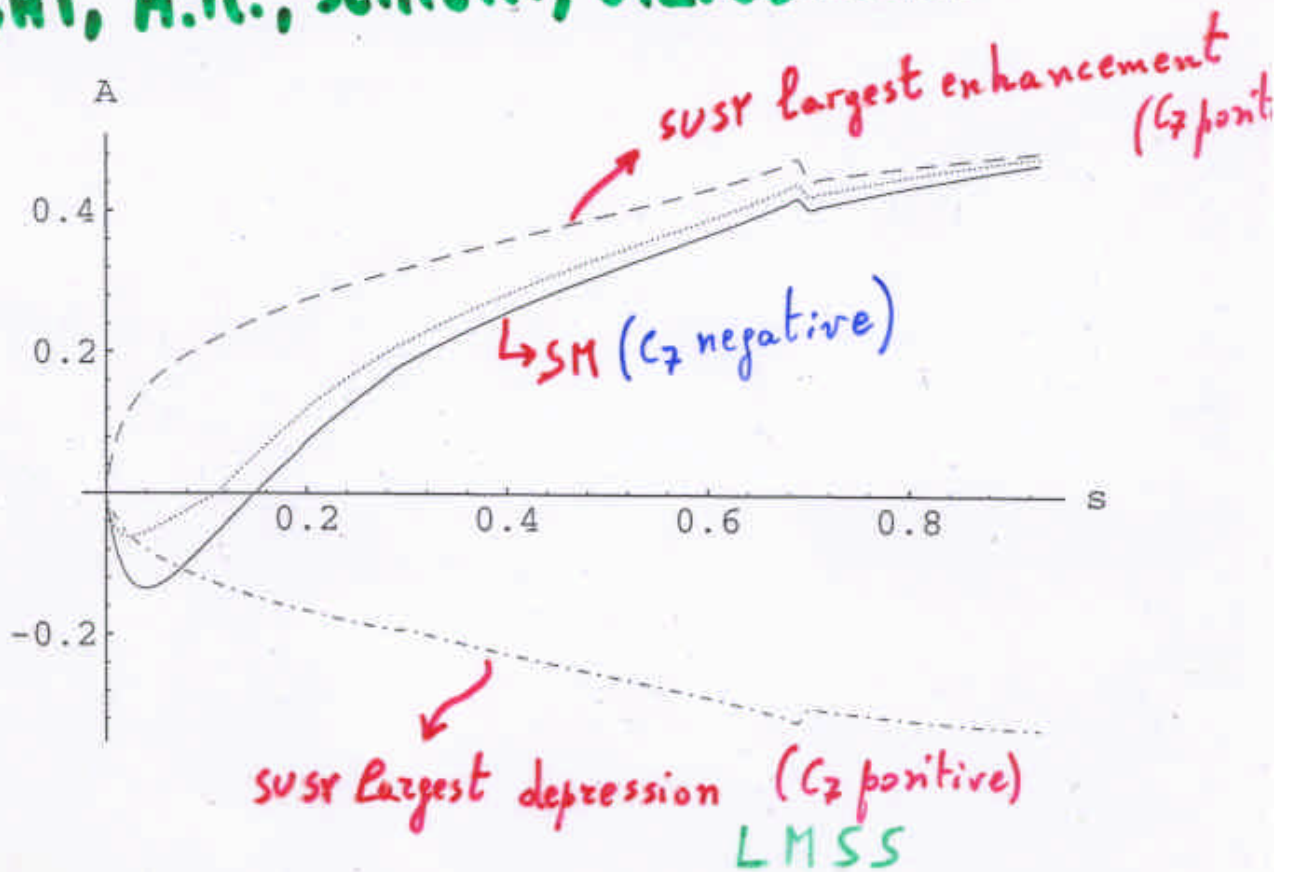 A.R.,
A
SUSY largest enhancement
(C7
0.4
0.2
SM (C7 negative)
0.2 0.4 0.6 0.8 S
-0.2
SUSY largest depression (C7 positive)
LMSS